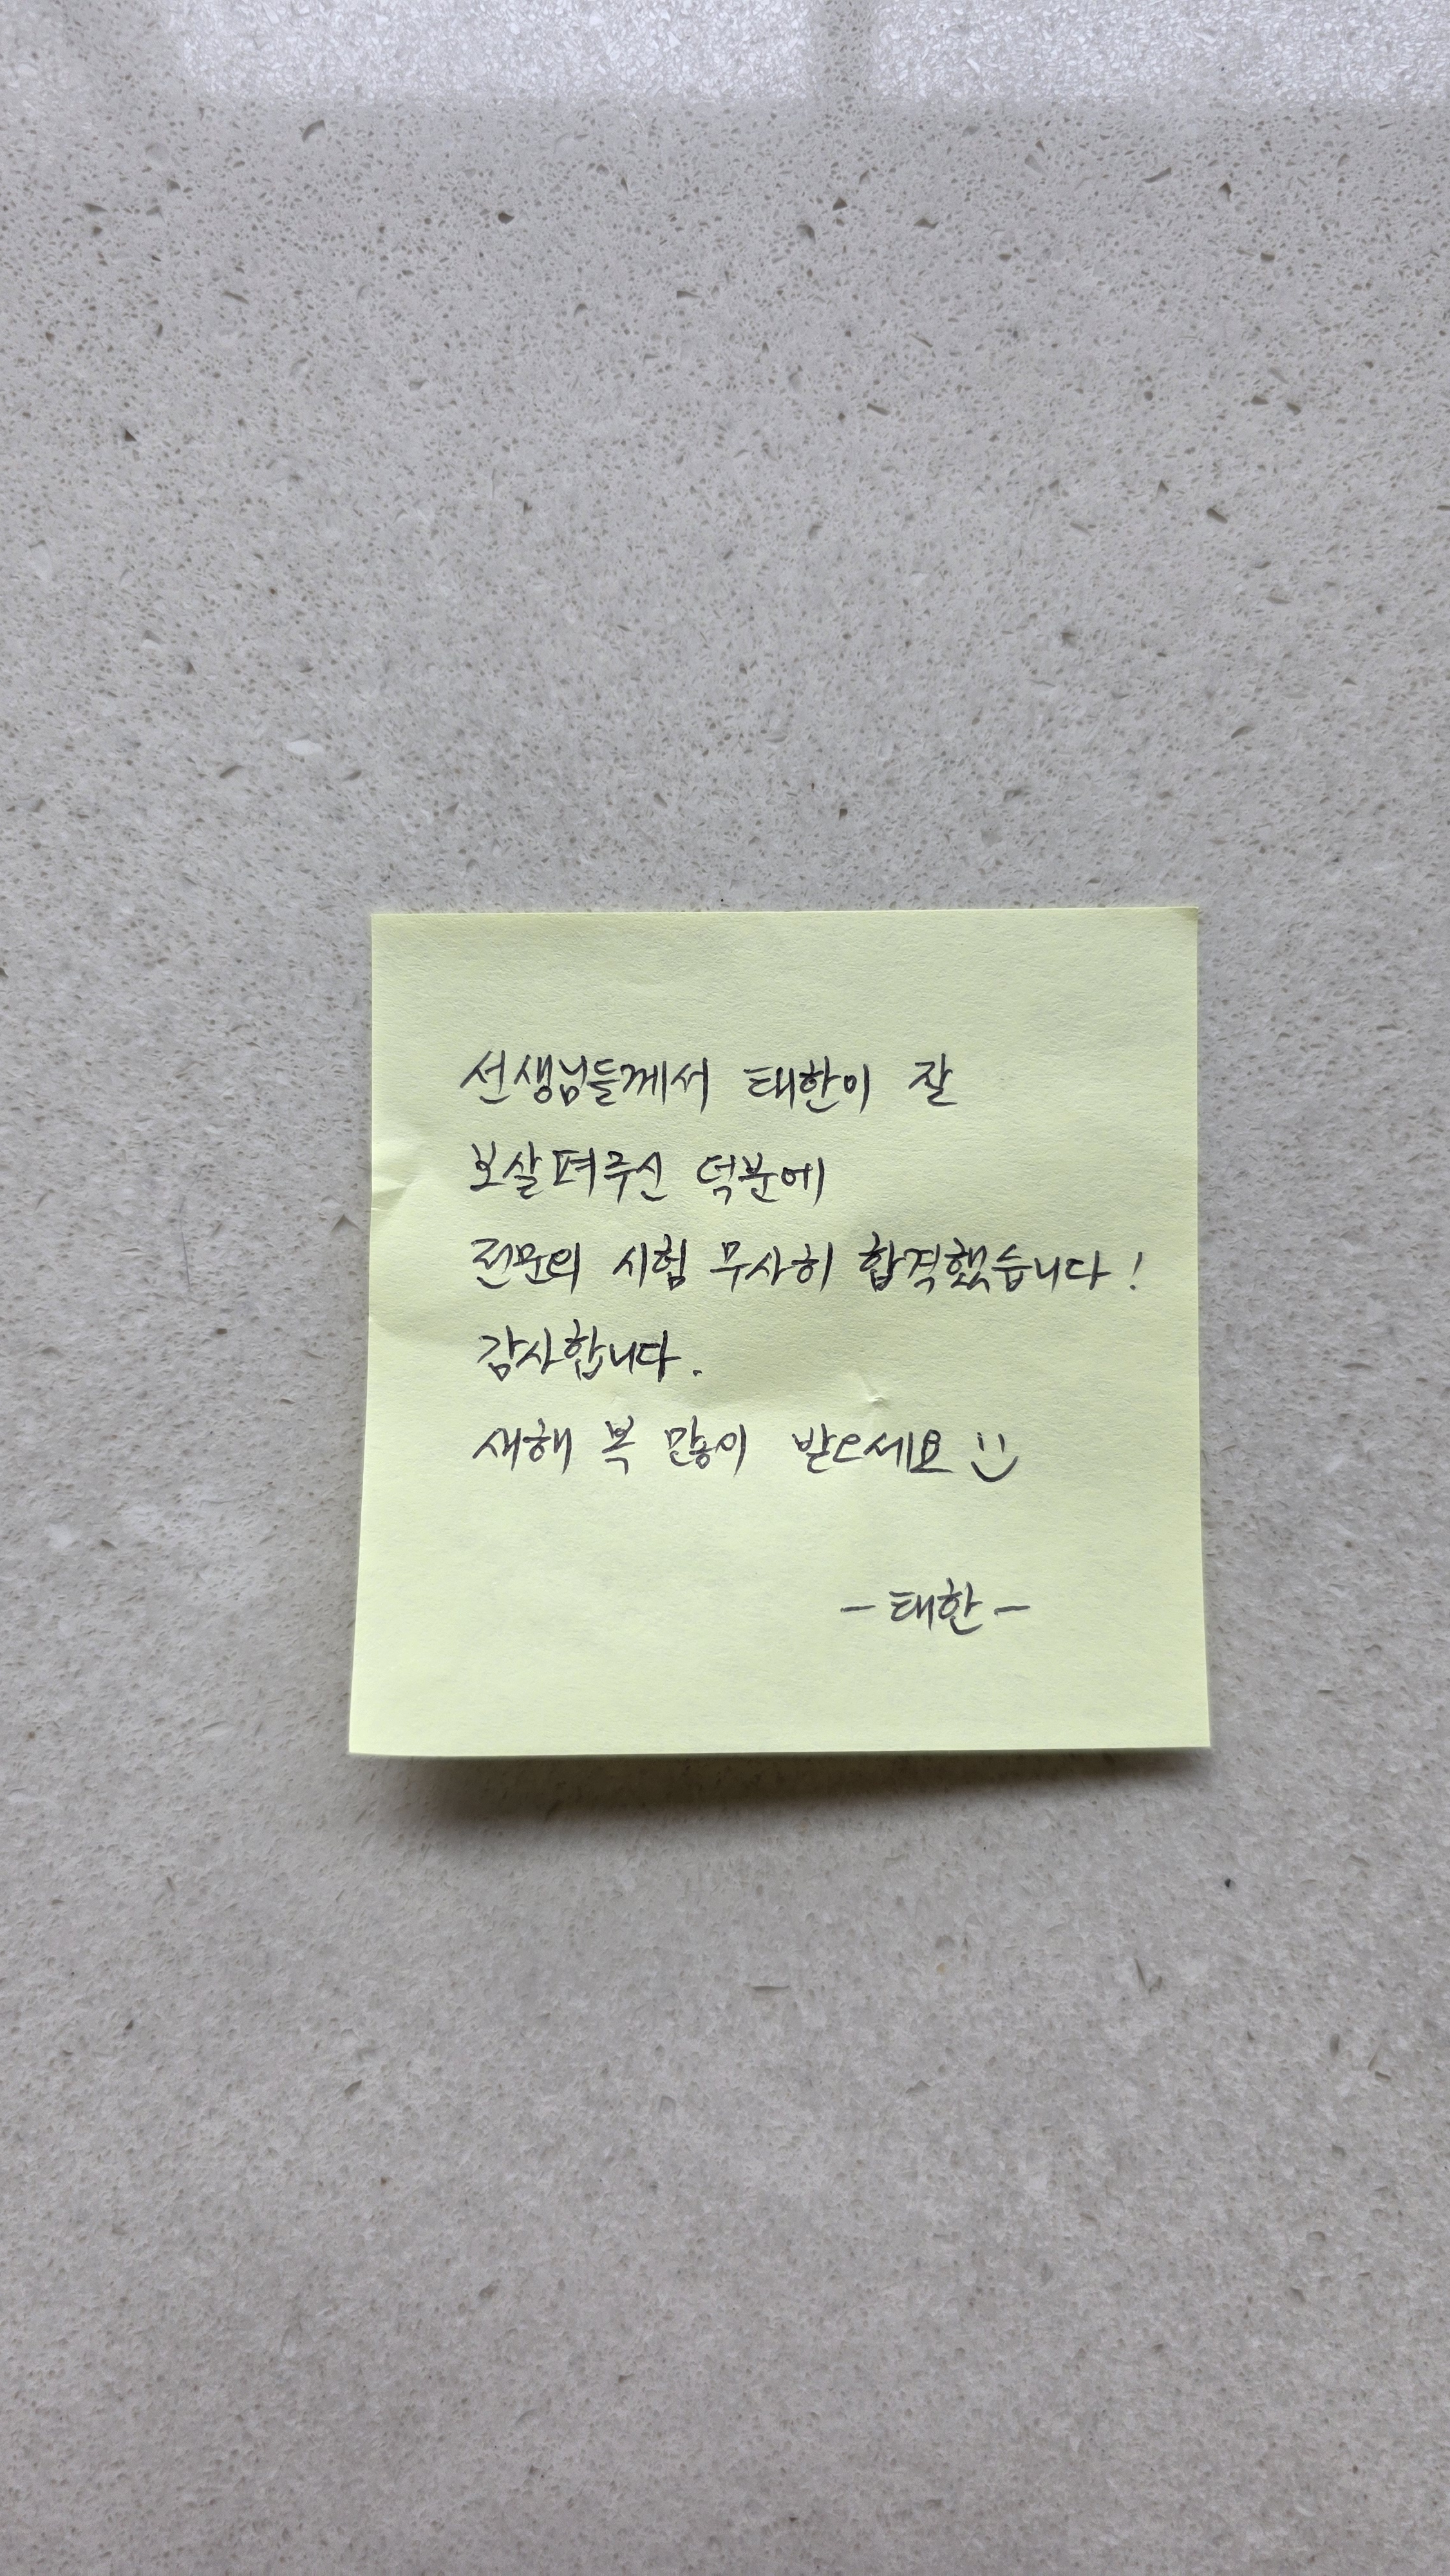 선생님들께서 태한이 잘
보살펴주신 덕분에
전문의 시험 무사히 합격했습니다!
감사합니다.
새해 복 많이 받으세요 :)
- 태한 -